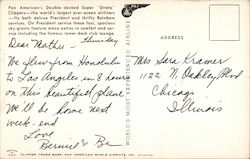 Pan American's Double-decked Super "Strato"
Clippers—the world's largest over-ocean airliners
—fly both deluxe President and thrifty Rainbow
services. On President service these fast, spacious
sky giants feature many extras in comfort and ser-
vice including the famous lower-deck club lounge.
Dear Mother - Thursday
We flew from Honolulu
to Los Angeles in 8 hours
on this beautiful plane
We'll be home next
week-end
Love
Bernice &
WORLD'S MOST EXPERIENCED AIRLINE
ADDRESS
Mrs Sara Kramer
1122 N. Oakley Blvd
Chicago
Illinois
CLIPPER, TRADE-MARK, PAN AMERICAN WORLD AIRWAYS, INC.